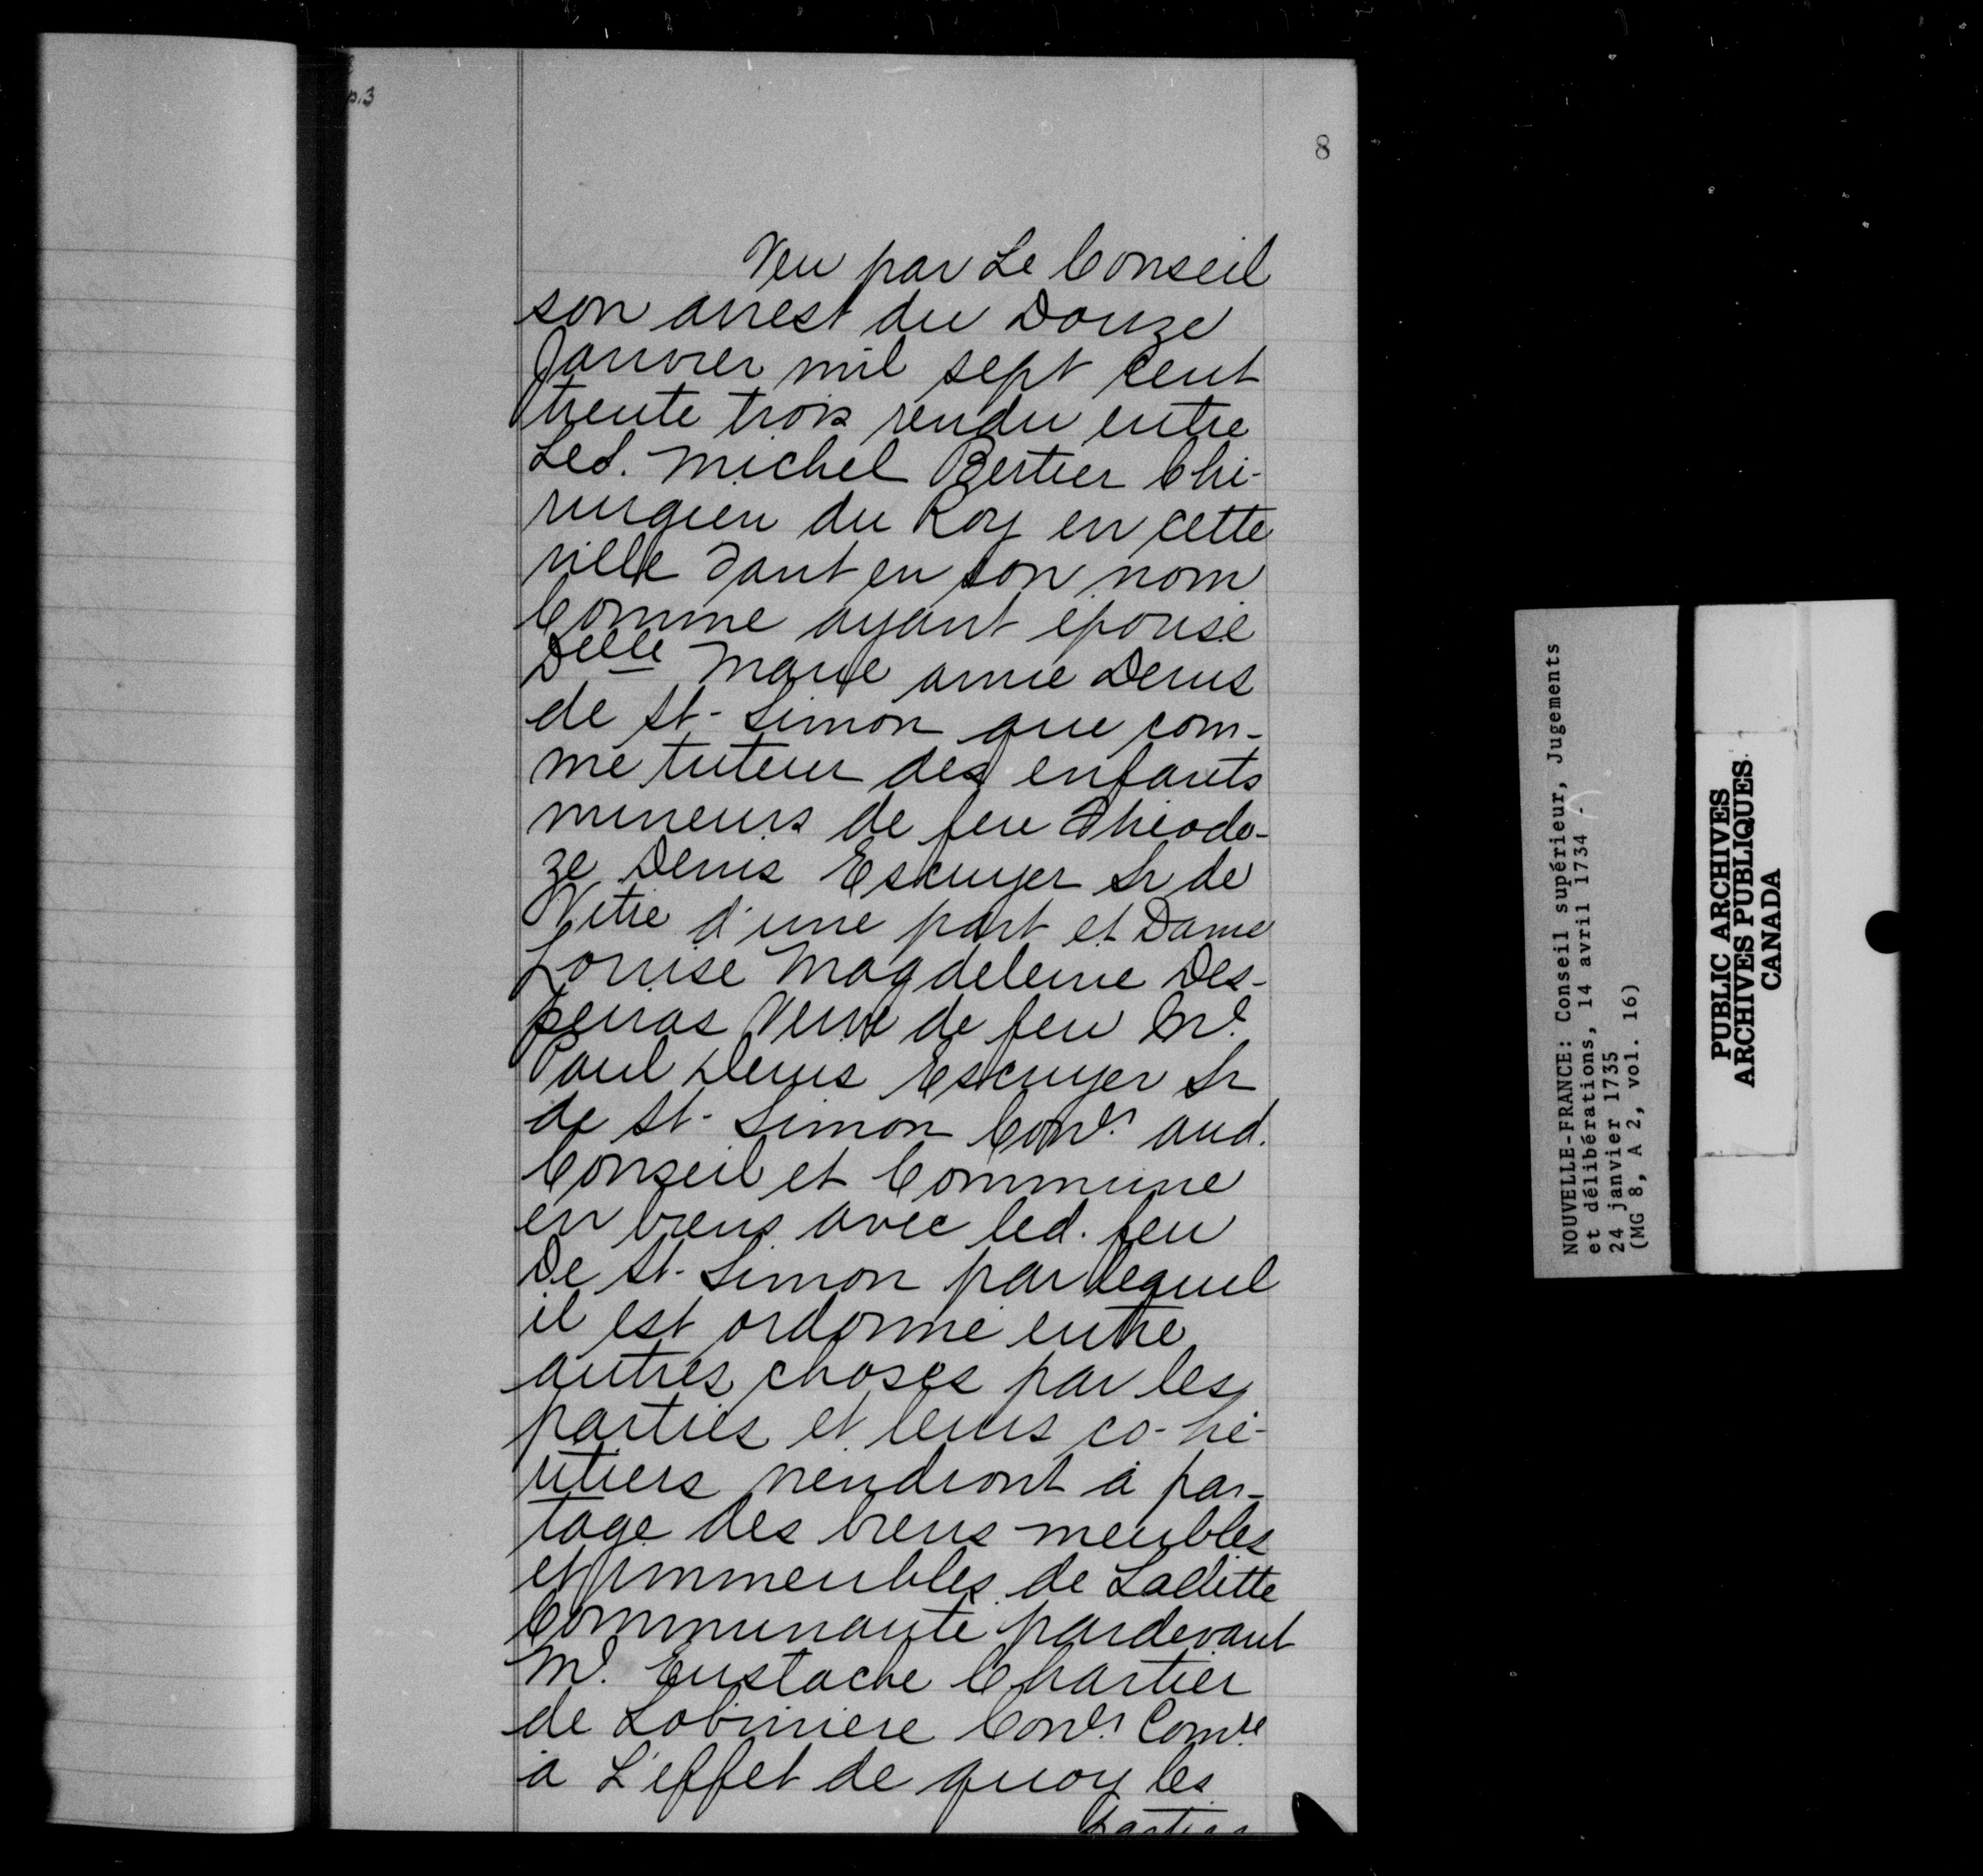 p.3
8
Veu par Le Conseil
son arrest du Douze
Janvier mil sept cent
trente trois rendu entre
Led. Michel Bertier Chi-
rurgien du Roy en cette
ville Tant en son nom
Comme ayant épousé
Delle Marie anne Denis
de St-Simon que com-
me tuteur des enfants
mineurs de feu Théodo-
ze Denis Escuyer Sr de
Vitré d'une part et Dame
Louise Magdeleine Des-
peiras Veuve de feu Me.
Paul Denis Escuyer Sr
de St-Simon Coner. aud.
Conseil et Commune
en biens avec led. feu
De St-Simon par lequel
il est ordonné entre
autres choses par les
parties et leurs co-hé-
ritiers viendront à par-
tage des biens meubles
et immeubles de Laditte
Communauté pardevant
Me. Eustache Chartier
de Lobiniere Coner. Comre
à L'effet de quoy les
parties
NOUVELLE-FRANCE: Conseil supérieur, Jugements
et délibérations, 14 avril 1734 -
24 janvier 1735
(MG 8, A 2, vol. 16)
PUBLIC ARCHIVES
ARCHIVES PUBLIQUES
CANADA